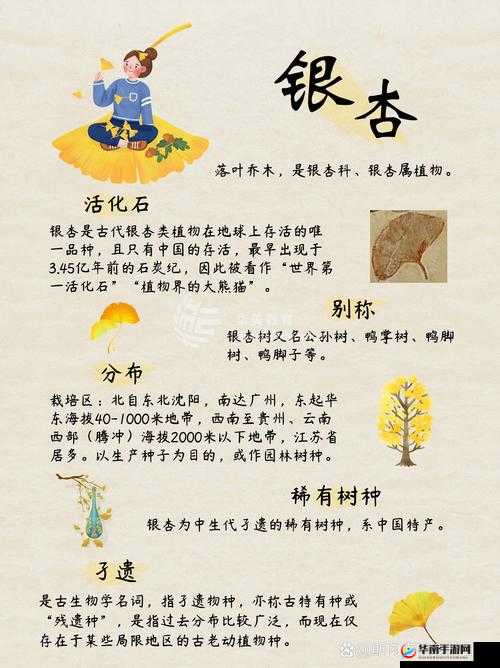 银杏
落叶乔木，是银杏科、银杏属植物。
活化石
银杏是古代银杏类植物在地球上存活的唯
一品种，且只有中国的存活，最早出现于
3.45亿年前的石炭纪，因此被看作“世界第
一活化石”“植物界的大熊猫”。
别称
银杏树又名公孙树、鸭掌树、鸭脚
树、鸭脚子等。
分布
栽培区：北自东北沈阳，南达广州，东起华
东海拔40-1000米地带，西南至贵州、云南
西部（腾冲）海拔2000米以下地带，江苏省
居多。以生产种子为目的，或作园林树种。
稀有树种
银杏为中生代孑遗的稀有树种，系中国特产。
孑遗
是古生物学名词，指孑遗物种，亦称古特有种或
“残遗种”，是指过去分布比较广泛，而现在仅
存在于某些局限地区的古老动植物种。
华南手游网